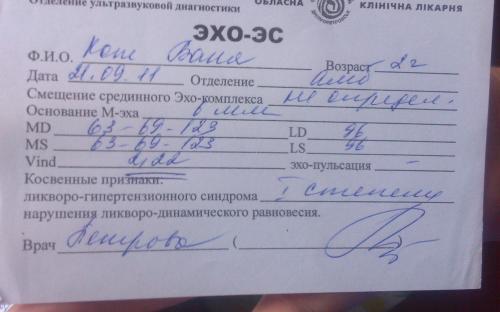 Отделение ультразвуковой диагностики
ОБЛАСНА
КЛІНІЧНА ЛІКАРНЯ
ЭХО-ЭС
Ф.И.О. Ваня Возраст 2 г
Дата 21.09.11 Отделение амб
Смещение срединного Эхо-комплекса не определ.
Основание М-эха 6 мм
MD 63-69-123 LD 96
MS 63-69-123 LS 96
Vind 2,22 эхо-пульсация –
Косвенные признаки:
ликворо-гипертензионного синдрома I степени
нарушения ликворо-динамического равновесия.
Врач Петрова (